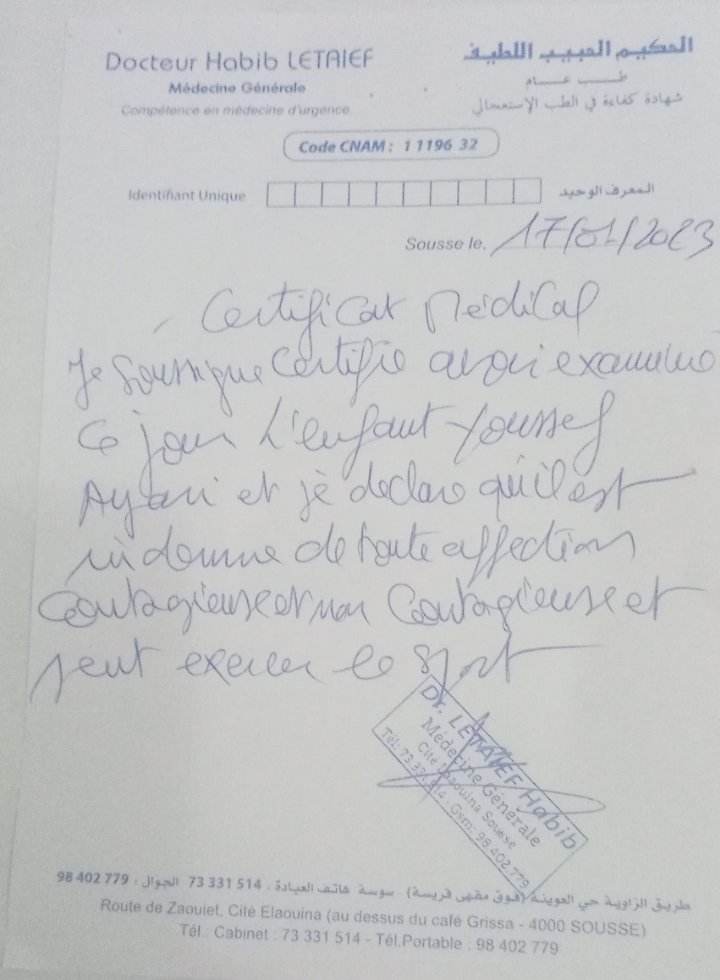 Docteur Habib LETAIEF
الحكيم الحبيب اللطيف
Médecine Générale
طـــب عـــام
Compétence en médecine d'urgence
شهادة كفاءة في الطب الإستعجالي
Code CNAM : 1 1196 32
Identifiant Unique
المعرف الوحيد
Sousse le, 17/01/2023
Certificat Médical
Je soussigné certifie avoir examiné
ce jour l'enfant Youssef
Ayari et je déclare qu'il est
indemne de toute affection
contagieuse et non contagieuse et
peut exercer le sport
Dr. LETAIEF Habib
Médecine Générale
Cité Elaouina Sousse
Tél: 73 331 514 - Gsm: 98 402 779
طريق الزاوية حي العوينة (فوق مقهى قريسة) - سوسة هاتف العيادة : 514 331 73 الجوال : 779 402 98
Route de Zaouiet, Cité Elaouina (au dessus du café Grissa - 4000 SOUSSE)
Tél : Cabinet : 73 331 514 - Tél.Portable : 98 402 779